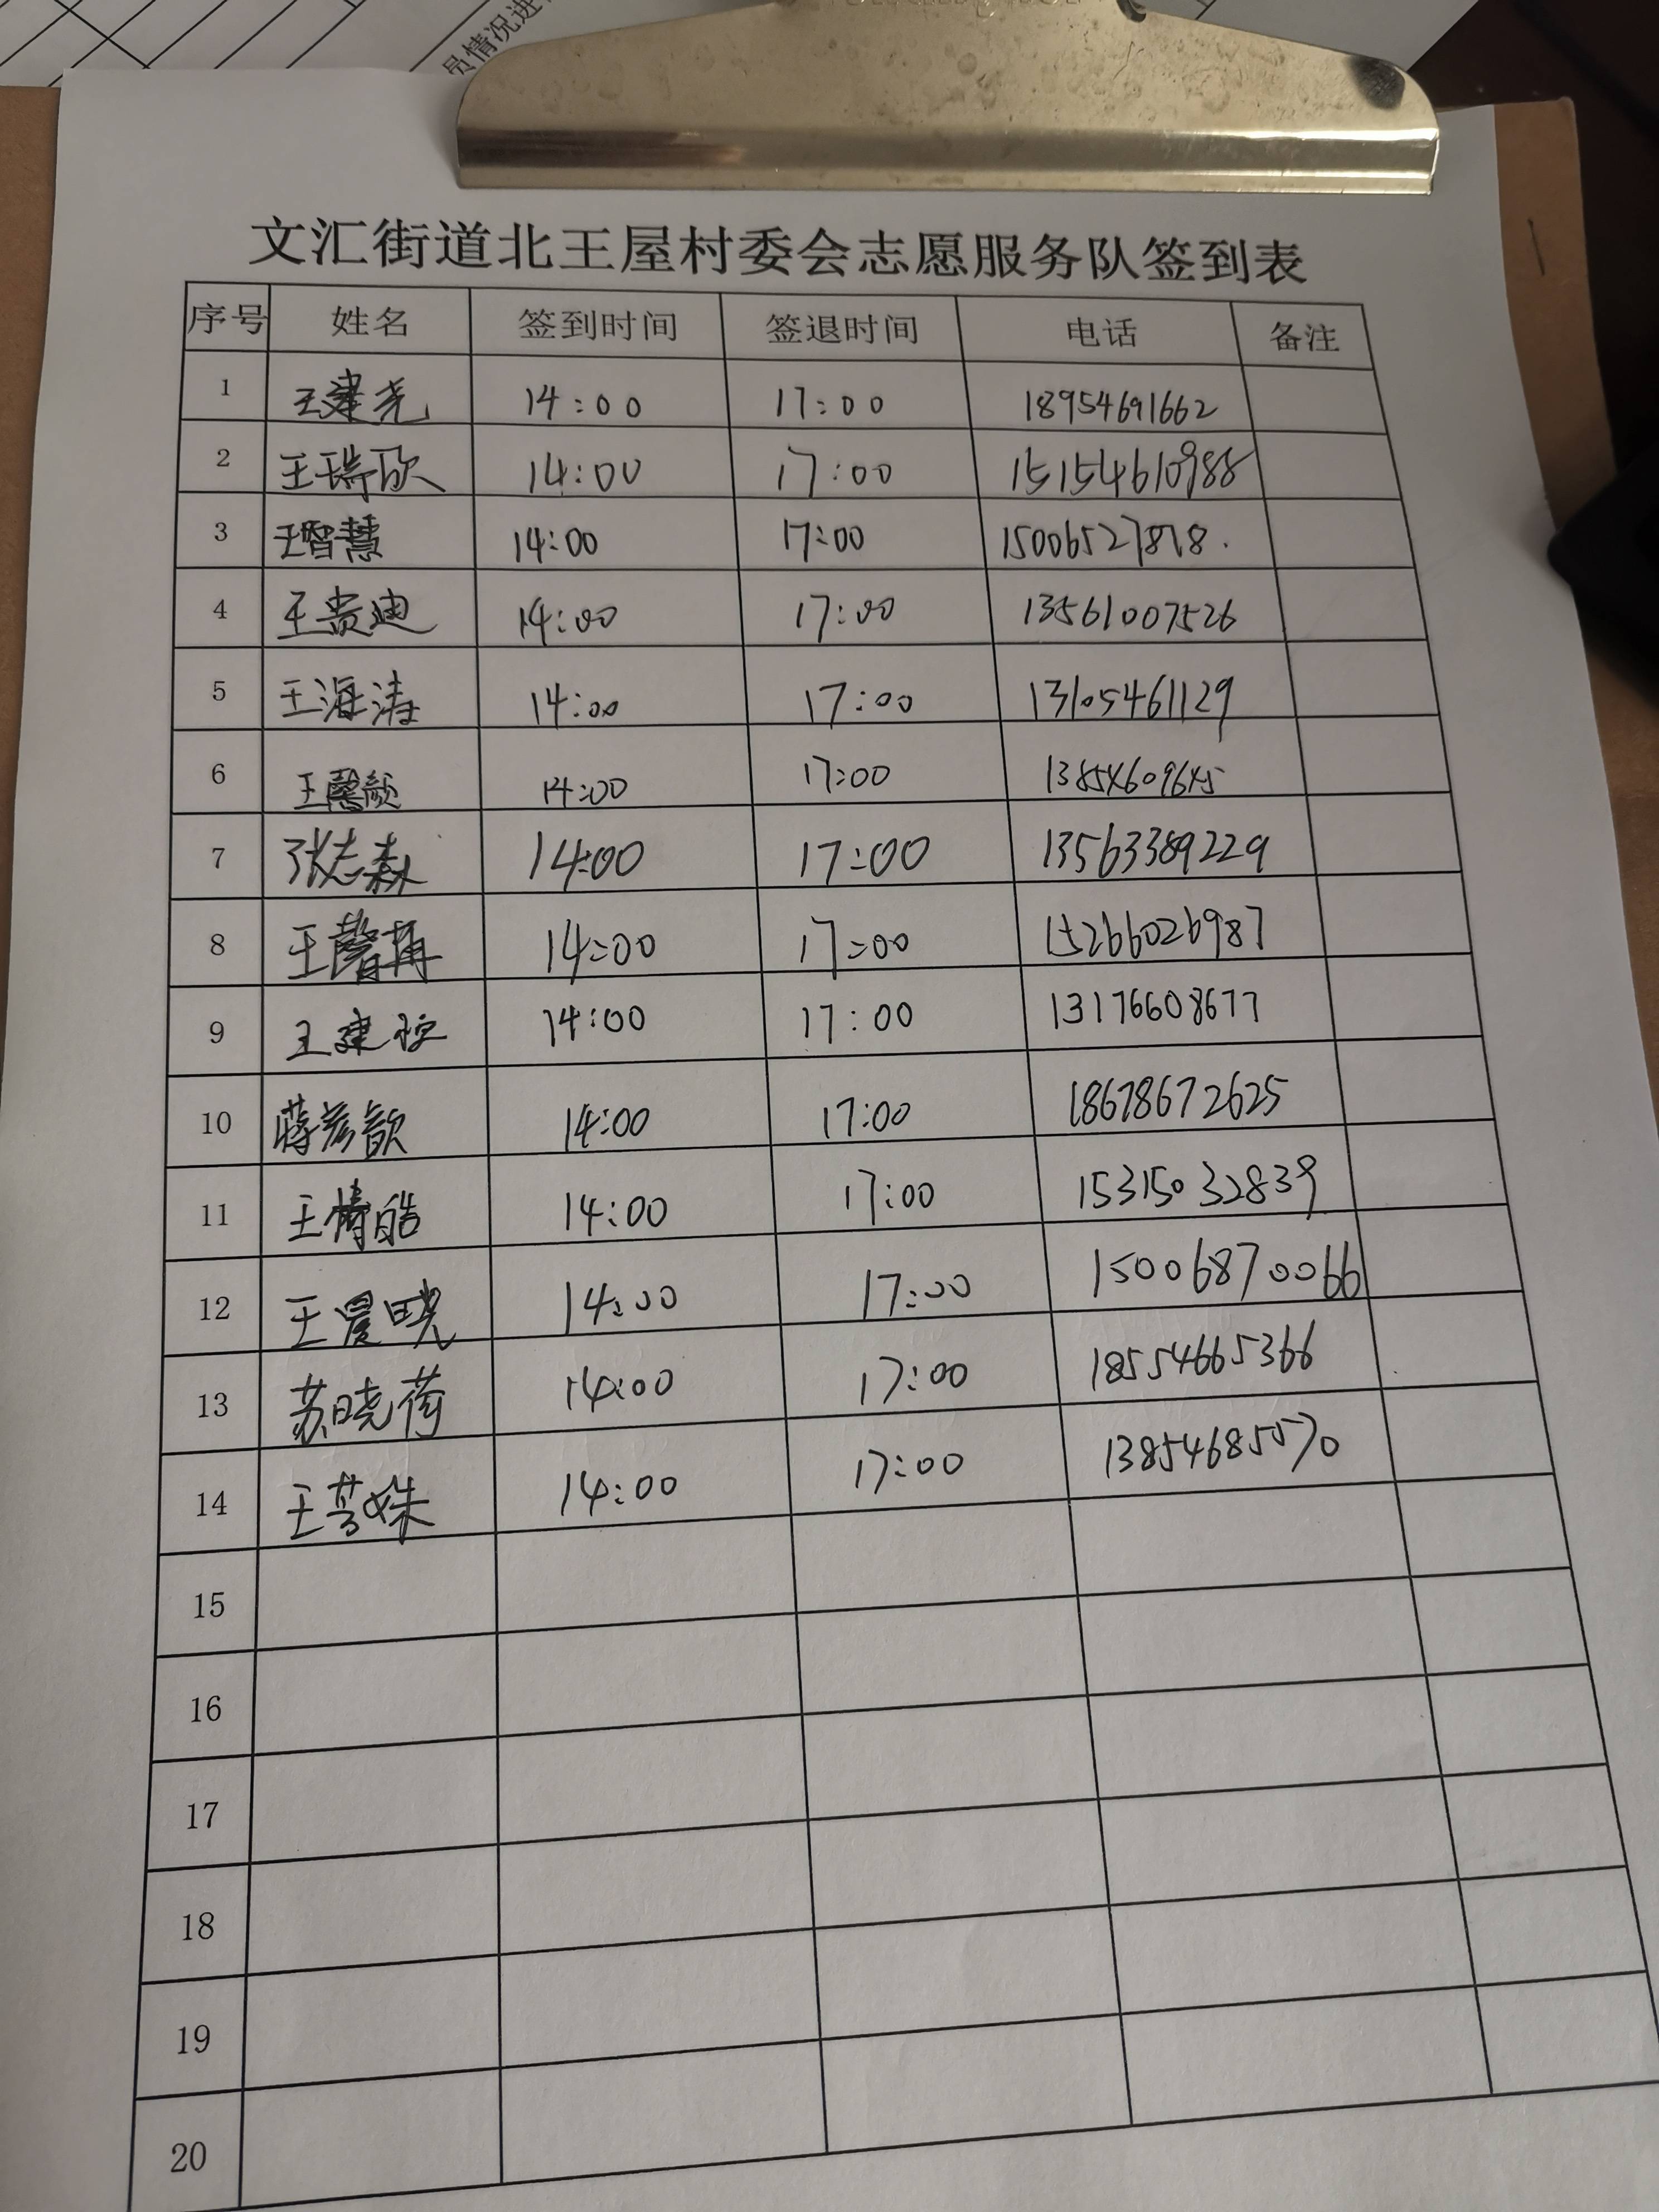 员情况进
文汇街道北王屋村委会志愿服务队签到表
序号 姓名 签到时间 签退时间 电话 备注
1 王建尧 14:00 17:00 18954691662
2 王瑞欣 14:00 17:00 15154610988
3 王智慧 14:00 17:00 15006527818.
4 王贵迪 14:00 17:00 13561007526
5 王海涛 14:00 17:00 13105461129
6 王馨颜 14:00 17:00 13854609645
7 张志森 14:00 17:00 13563389229
8 王馨苒 14:00 17:00 15266026987
9 王建 14:00 17:00 13176608677
10 蒋彦歆 14:00 17:00 18678672625
11 王 皓 14:00 17:00 15315032839
12 王晨晓 14:00 17:00 15006870066
13 苏晓荷 14:00 17:00 18554665366
14 王 姝 14:00 17:00 13854685570
15
16
17
18
19
20